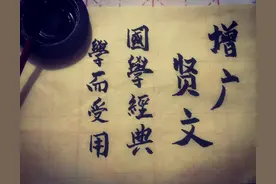 增广
贤文
國學經典
學而受用